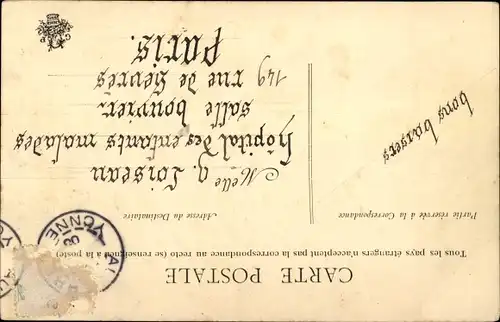 CARTE POSTALE
Tous les pays étrangers n'acceptent pas la correspondance au recto (se renseigner à la poste)
Partie réservée à la Correspondance
Adresse du Destinataire
bons baisers
Melle G. Loiseau
hôpital des enfants malades
salle bouvier
149 rue de Sèvres
Paris.
YONNE